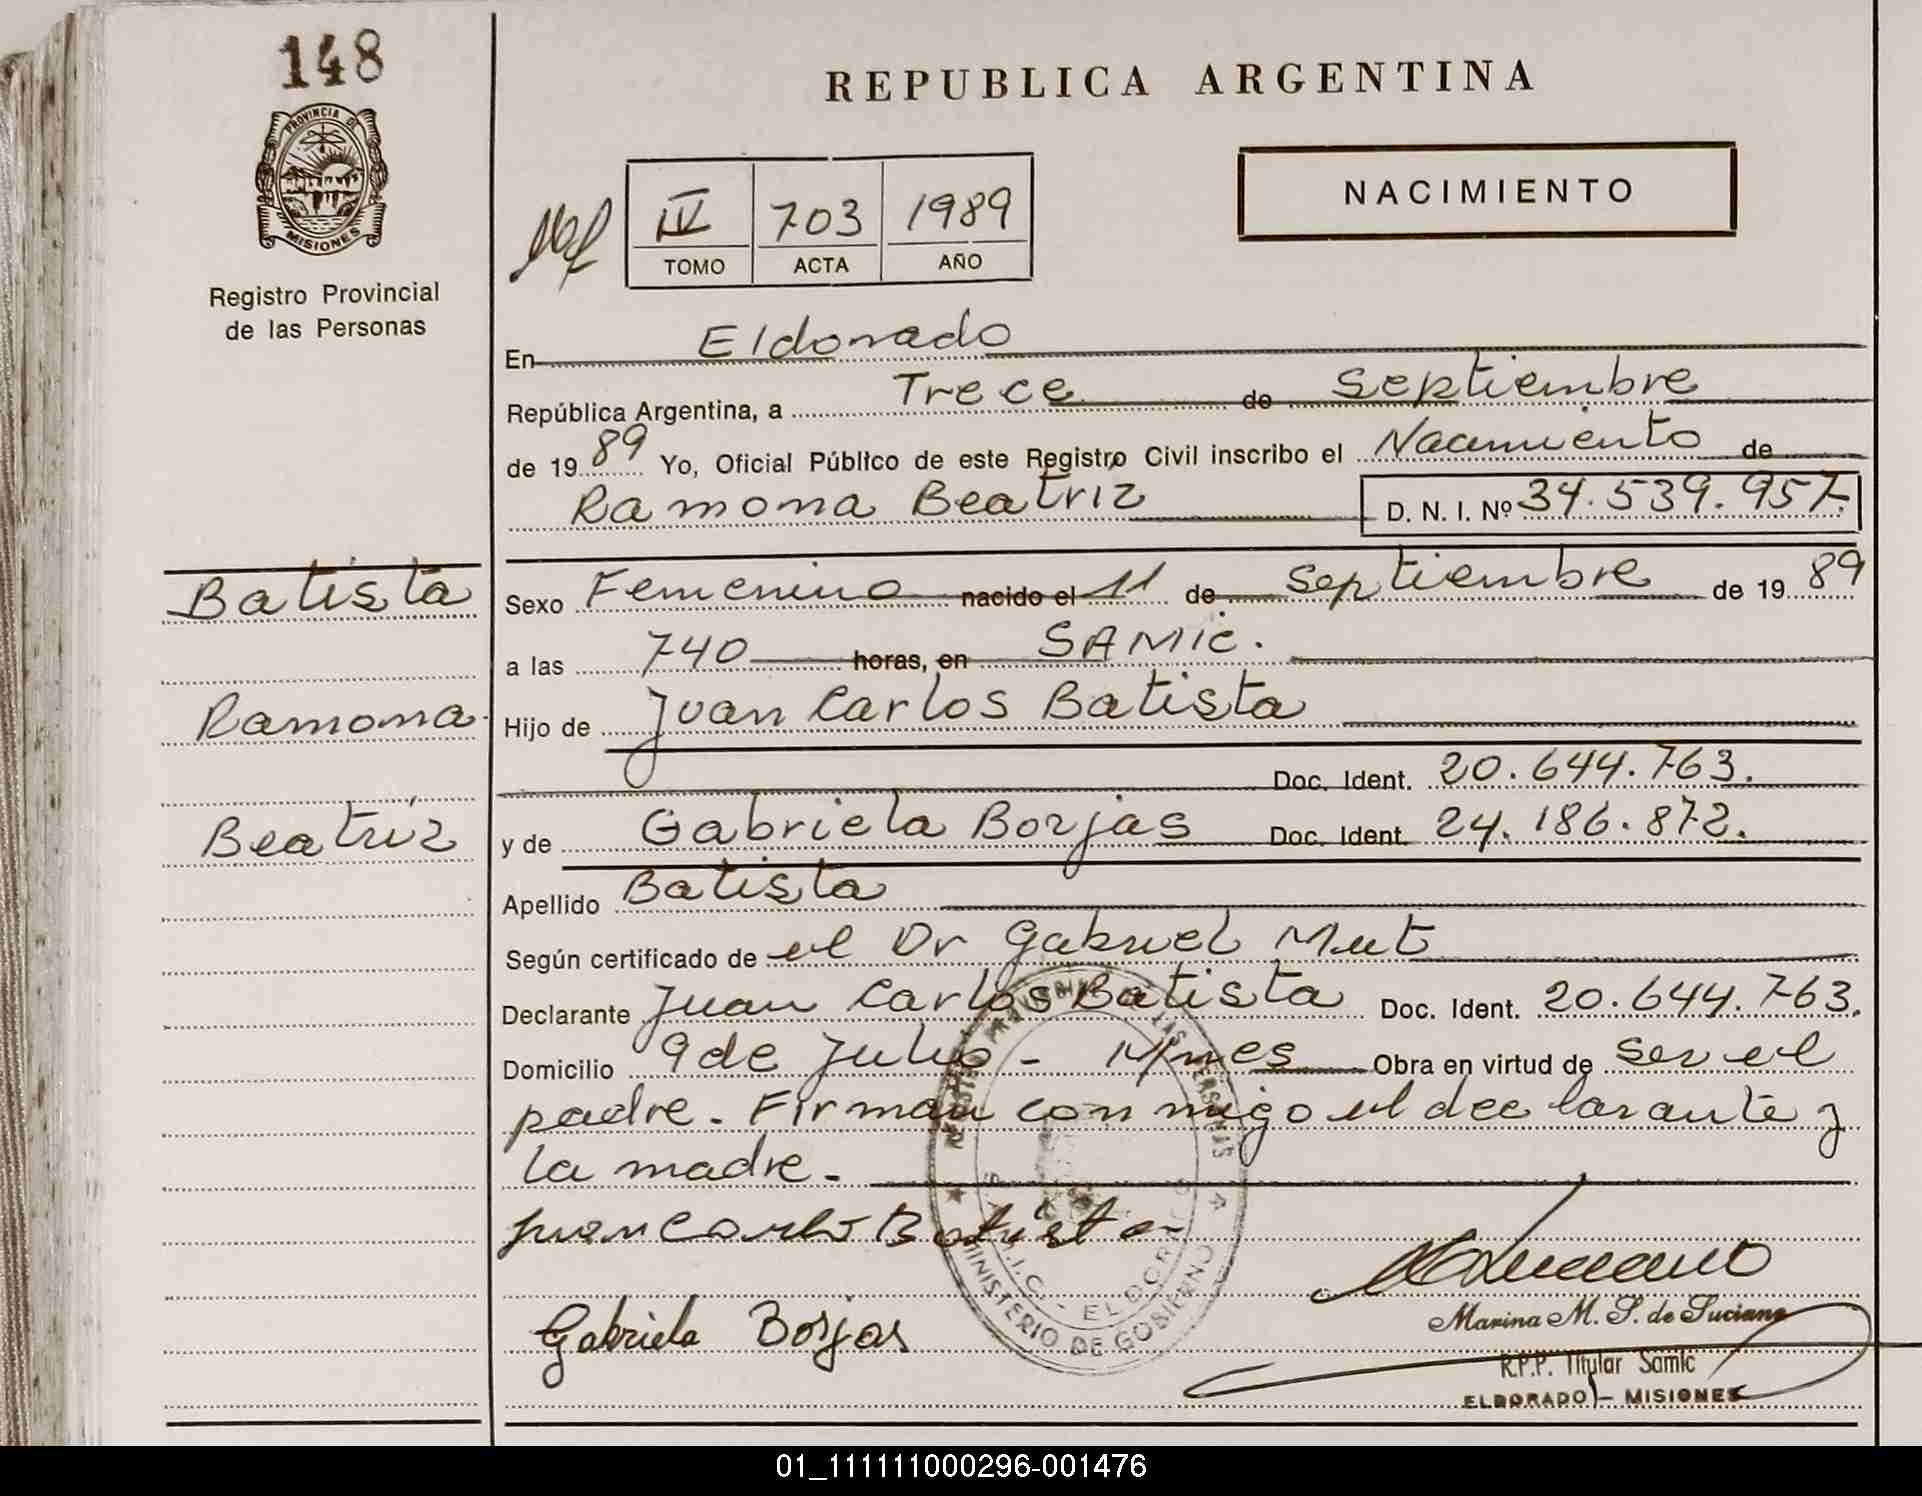 148
REPUBLICA ARGENTINA
PROVINCIA DE
MISIONES
Registro Provincial
de las Personas
IV 703 1989
TOMO ACTA AÑO
NACIMIENTO
En Eldorado
República Argentina, a Trece de Septiembre
de 1989 Yo, Oficial Público de este Registro Civil inscribo el Nacimiento de
Ramona Beatriz D. N. I. Nº 34.539.957.
Batista
Ramona
Beatriz
Sexo Femenino nacido el 11 de Septiembre de 1989
a las 740 horas, en SAMIC.
Hijo de Juan Carlos Batista
Doc. Ident. 20.644.763.
y de Gabriela Borjas Doc. Ident. 24.186.872.
Apellido Batista
Según certificado de el Dr Gabriel Mut
Declarante Juan Carlos Batista Doc. Ident. 20.644.763.
Domicilio 9 de Julio - Mnes Obra en virtud de ser el
padre. Firman con migo el declarante y
la madre.
Juan Carlos Batista
Gabriela Borjas
Marina M. S. de Luciano
R.P.P. Titular Samic
ELDORADO - MISIONES
REGISTRO PROVINCIAL DE LAS PERSONAS
S.A.M.I.C. - ELDORADO
MINISTERIO DE GOBIERNO
01_111111000296-001476